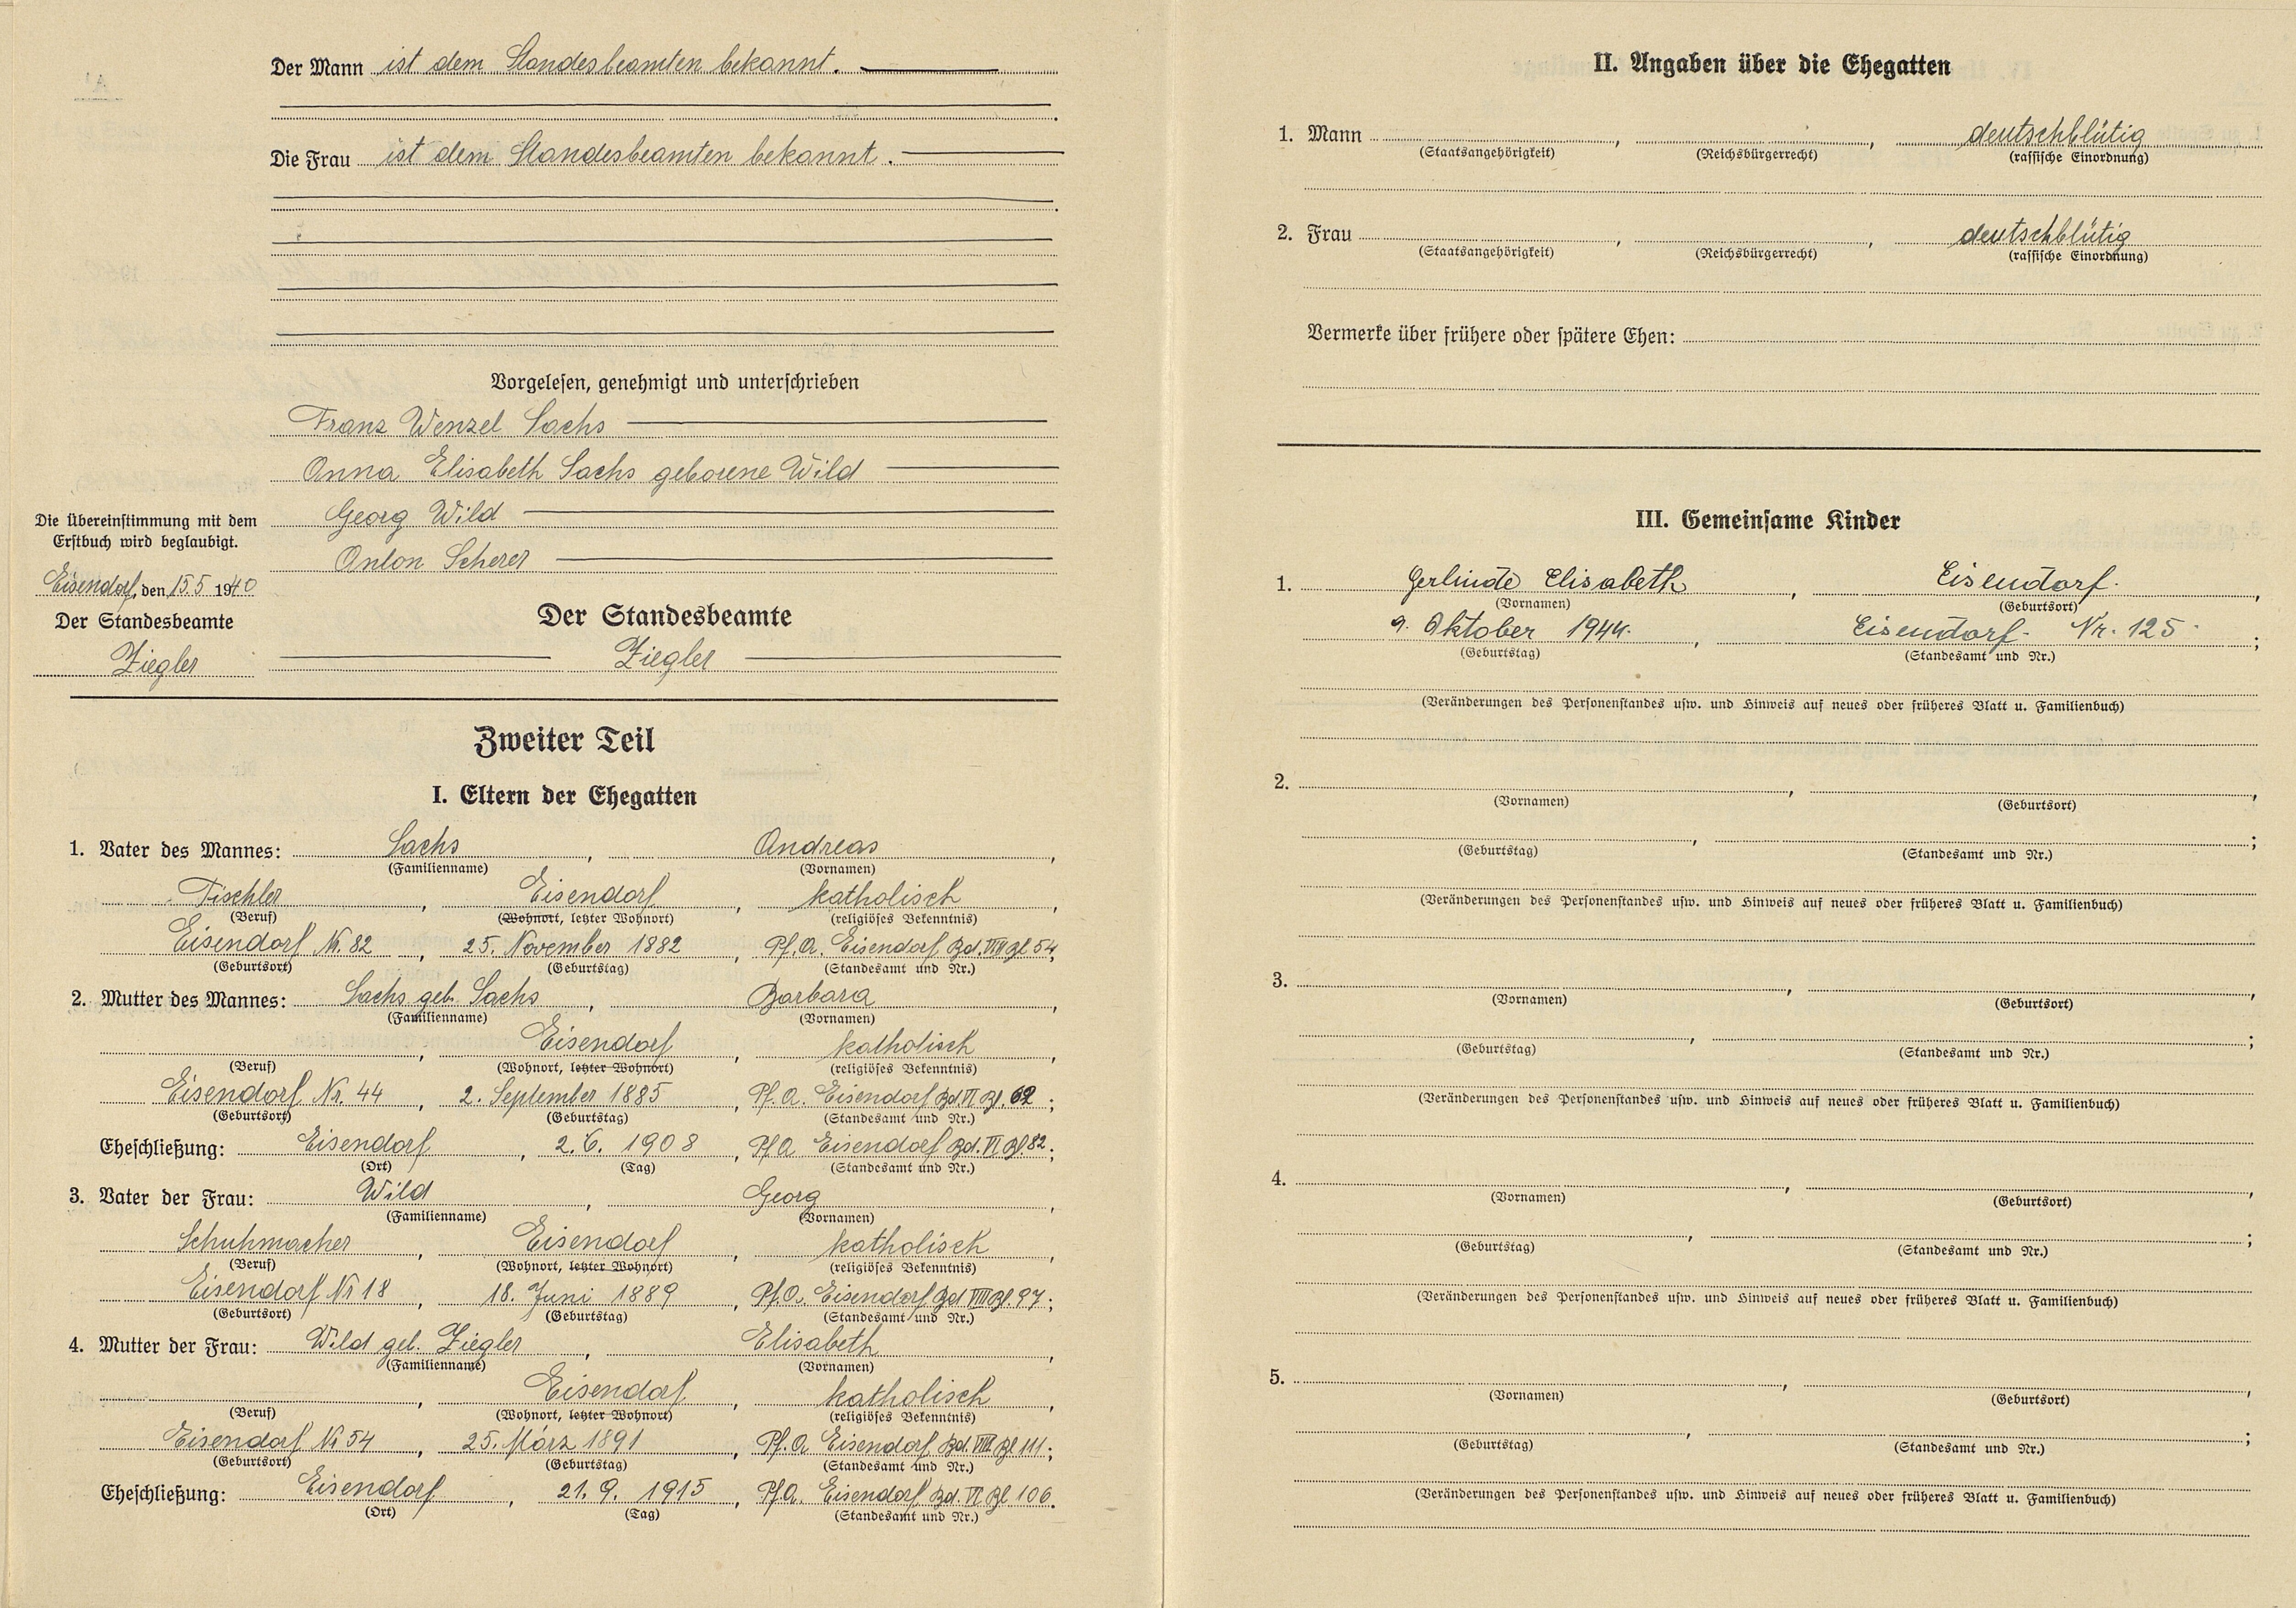 Der Mann ist dem Standesbeamten bekannt.
Die Frau ist dem Standesbeamten bekannt.
Vorgelesen, genehmigt und unterschrieben
Franz Wenzel Sachs
Anna Elisabeth Sachs geborene Wild
Georg Wild
Anton Scherer
Die Übereinstimmung mit dem
Erstbuch wird beglaubigt.
Eisendorf, den 15.5 1940
Der Standesbeamte
Ziegler
Der Standesbeamte
Ziegler
Zweiter Teil
I. Eltern der Ehegatten
1. Vater des Mannes: Sachs, Andreas,
(Familienname) (Vornamen)
Tischler, Eisendorf, katholisch,
(Beruf) (Wohnort, letzter Wohnort) (religiöses Bekenntnis)
Eisendorf Nr. 82, 25. November 1882, Pf.A. Eisendorf Bd. VIII Bl 54,
(Geburtsort) (Geburtstag) (Standesamt und Nr.)
2. Mutter des Mannes: Sachs geb. Sachs, Barbara,
(Familienname) (Vornamen)
, Eisendorf, katholisch,
(Beruf) (Wohnort, letzter Wohnort) (religiöses Bekenntnis)
Eisendorf Nr. 44, 2. September 1885, Pf.A. Eisendorf Bd. VI Bl. 62;
(Geburtsort) (Geburtstag) (Standesamt und Nr.)
Eheschließung: Eisendorf, 2. 6. 1908, Pf.A Eisendorf Bd. VI Bl. 82;
(Ort) (Tag) (Standesamt und Nr.)
3. Vater der Frau: Wild, Georg,
(Familienname) (Vornamen)
Schuhmacher, Eisendorf, katholisch,
(Beruf) (Wohnort, letzter Wohnort) (religiöses Bekenntnis)
Eisendorf Nr 18, 18. Juni 1889, Pf.A. Eisendorf Bd VIII Bl. 97;
(Geburtsort) (Geburtstag) (Standesamt und Nr.)
4. Mutter der Frau: Wild geb. Ziegler, Elisabeth,
(Familienname) (Vornamen)
, Eisendorf, katholisch,
(Beruf) (Wohnort, letzter Wohnort) (religiöses Bekenntnis)
Eisendorf Nr 54, 25. März 1891, Pf.A Eisendorf Bd. VIII Bl 111;
(Geburtsort) (Geburtstag) (Standesamt und Nr.)
Eheschließung: Eisendorf, 21. 9. 1915, Pf.A. Eisendorf Bd. VI Bl 106.
(Ort) (Tag) (Standesamt und Nr.)
II. Angaben über die Ehegatten
1. Mann , , deutschblütig
(Staatsangehörigkeit) (Reichsbürgerrecht) (rassische Einordnung)
2. Frau , , deutschblütig
(Staatsangehörigkeit) (Reichsbürgerrecht) (rassische Einordnung)
Vermerke über frühere oder spätere Ehen:
III. Gemeinsame Kinder
1. Gerlinde Elisabeth, Eisendorf.,
(Vornamen) (Geburtsort)
9. Oktober 1944., Eisendorf- Nr. 125;
(Geburtstag) (Standesamt und Nr.)
(Veränderungen des Personenstandes usw. und Hinweis auf neues oder früheres Blatt u. Familienbuch)
2. , ,
(Vornamen) (Geburtsort)
, ;
(Geburtstag) (Standesamt und Nr.)
(Veränderungen des Personenstandes usw. und Hinweis auf neues oder früheres Blatt u. Familienbuch)
3. , ,
(Vornamen) (Geburtsort)
, ;
(Geburtstag) (Standesamt und Nr.)
(Veränderungen des Personenstandes usw. und Hinweis auf neues oder früheres Blatt u. Familienbuch)
4. , ,
(Vornamen) (Geburtsort)
, ;
(Geburtstag) (Standesamt und Nr.)
(Veränderungen des Personenstandes usw. und Hinweis auf neues oder früheres Blatt u. Familienbuch)
5. , ,
(Vornamen) (Geburtsort)
, ;
(Geburtstag) (Standesamt und Nr.)
(Veränderungen des Personenstandes usw. und Hinweis auf neues oder früheres Blatt u. Familienbuch)